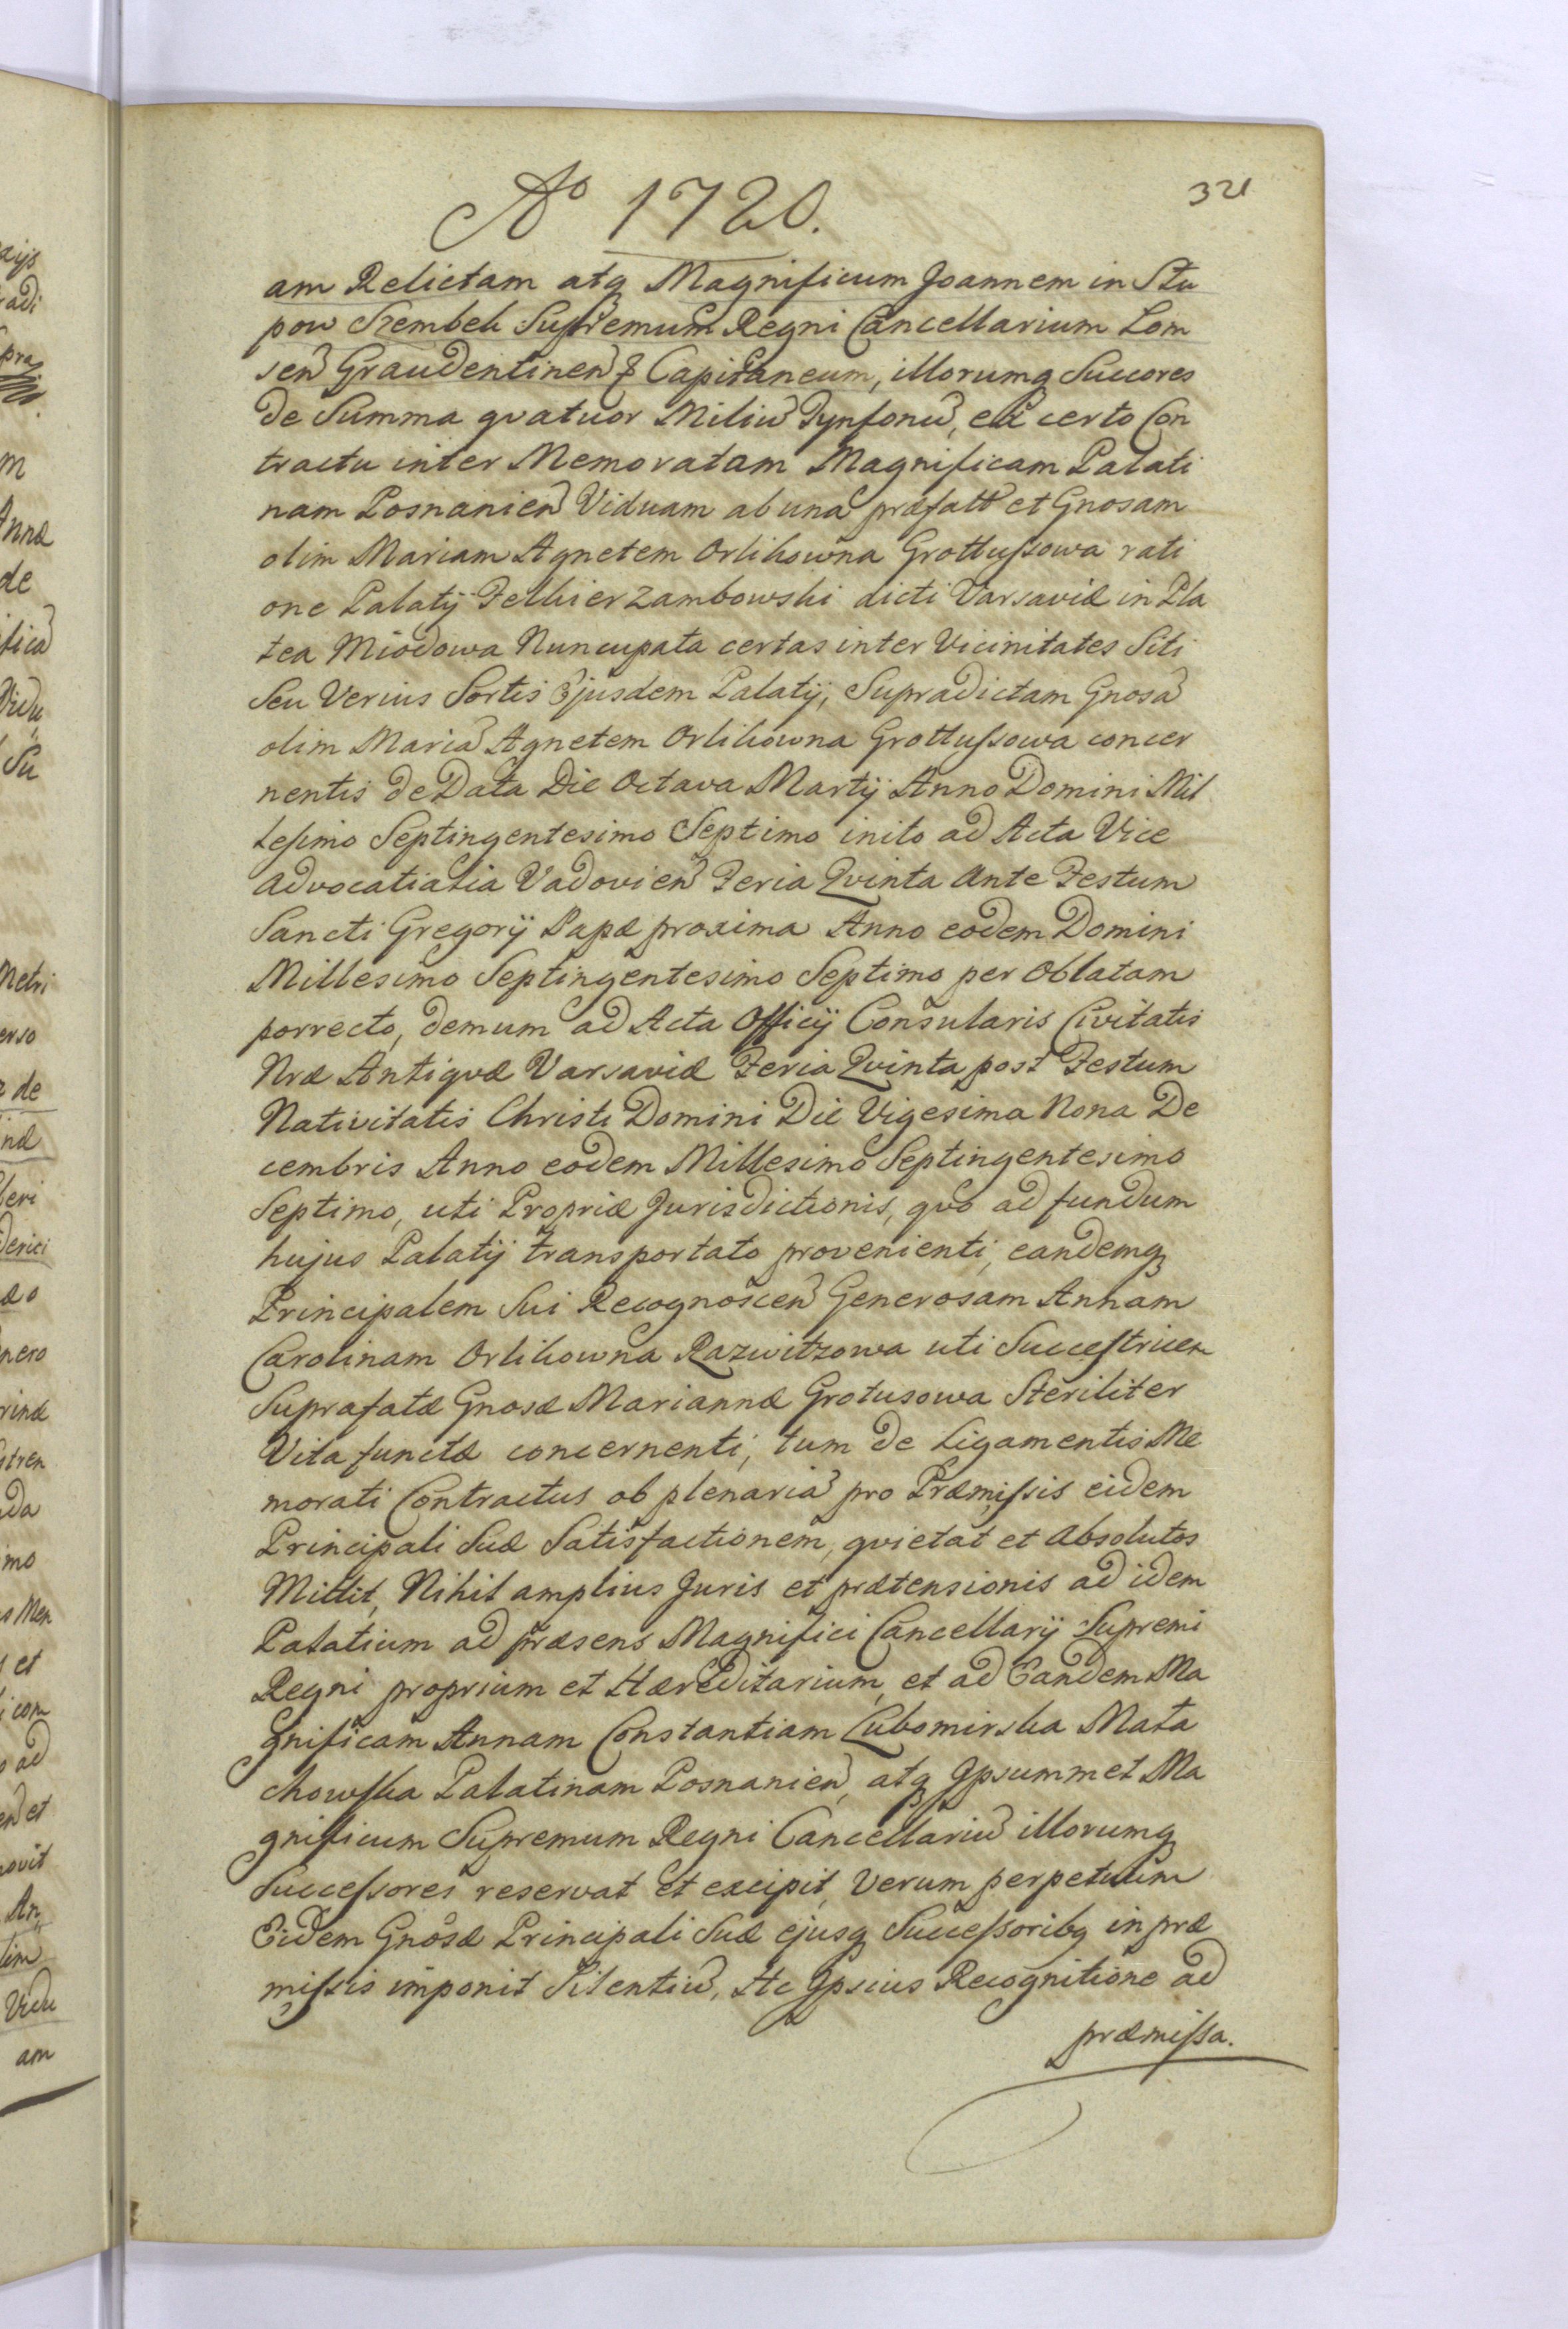 321
Aº 1720.
am Relictam atq Magnificum Joannem in Stu
pow Szembek Supremum Regni Cancellarium Lom
sen Graudentinen & Capitaneum, illorumq Succores
de Summa qvatuor Miliũ Tynfonũ, ex certo Con
tractu inter Memoratam Magnificam Palati
nam Posnanien Viduam ab una præfatt et Gnosam
olim Mariam Agnetem Orlikowna Grottuſsowa rati
one Palatÿ Felkierzambowski dicti Varsaviæ in Pla
tea Miodowa Nuncupata certas inter Vicinitates Siti
Seu Verius Sortis Ejusdem Palatÿ, Supradictam Gnosã
olim Mariã Agnetem Orlikowna Grottuſsowa concer
nentis de Data Die Octava Martÿ Anno Domini Mil
lesimo Septingentesimo Septimo inito ad Acta Vice
advocatialia Vadovien Feria Qvinta Ante Festum
Sancti Gregorÿ Papæ proxima Anno eodem Domini
Millesimo Septingentesimo Septimo per Oblatam
porrecto, demum ad Acta Officÿ Consularis Civitatis
Nræ Antiqvæ Varsaviæ Feria Qvinta post Festum
Nativitatis Christi Domini Die Vigesima Nona De
cembris Anno eodem Millesimo Septingentesimo
Septimo, uti Propriæ Jurisdictionis, qvo ad fundum
hujus Palatÿ transportato provenienti, eandemq
Principalem Sui Recognoscen Generosam Annam
Carolinam Orlikowna Razwitzowa uti Succeſtricem
Suprafatæ Gnosæ Mariannæ Grotusowa Steriliter
Vita functæ concernenti, tum de Ligamentis Me
morati Contractus ob plenariã pro Præmiſsis eidem
Principali Suæ Satisfactionem, qvietat et Absolutos
Mittit, Nihil amplius Juris et prætensionis ad idem
Palatium ad præsens Magnifici Cancellarÿ Supremi
Regni proprium et Hæreditarium, et ad Eandem Ma
gnificam Annam Constantiam Lubomirska Mała
chowſka Palatinam Posnanien, atq Ipsummet Ma
gnificum Supremum Regni Cancellariũ illorumq
Succeſsores reservat et excipit, Verum perpetuum
Eidem Gnosæ Principali Suæ ejusq Succeſsoribq in præ
miſsis imponit Silentiũ, Hc Ipsius Recognitione ad
præmiſsa.